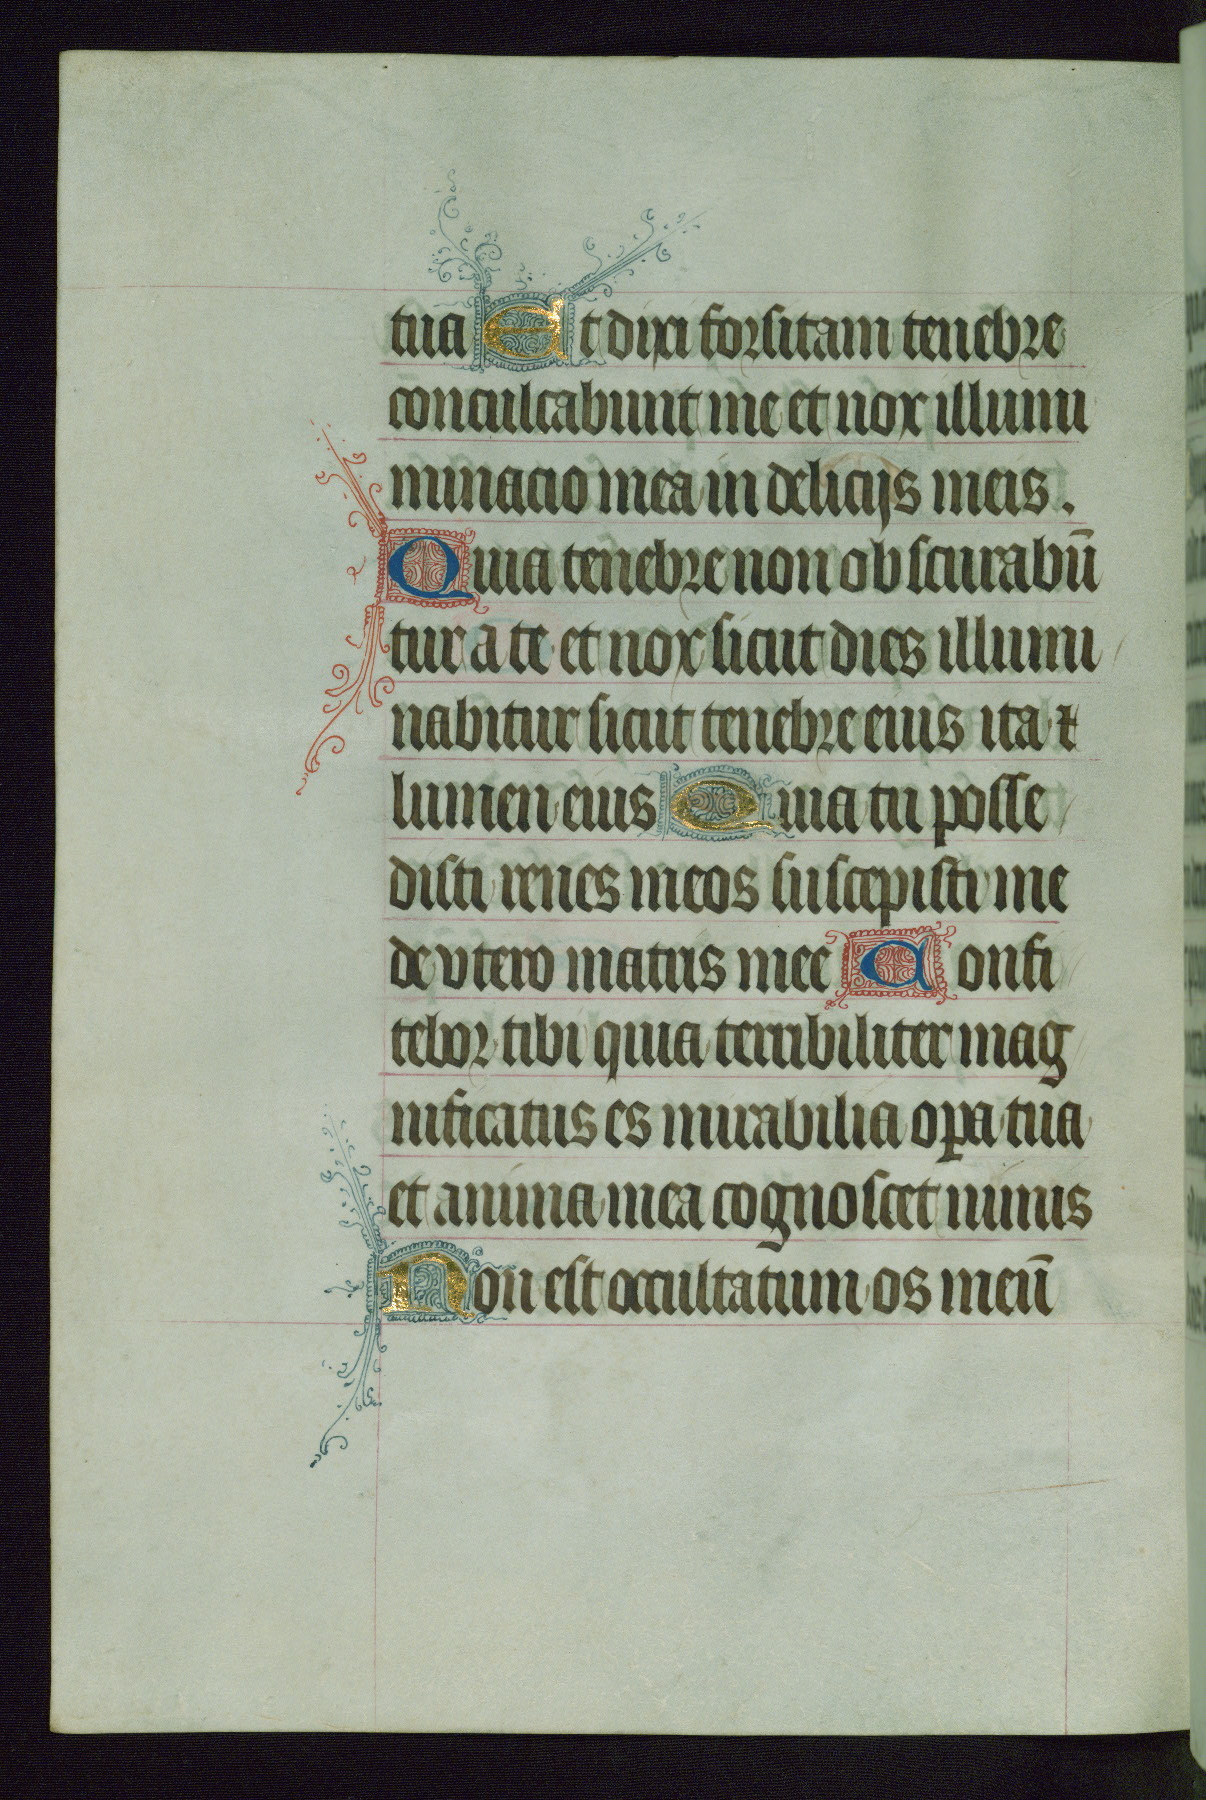 tua Et dixi forsitam tenebre
conculcabunt me et nox illumi
minacio mea in delicijs meis.
Quia tenebre non obscurabū
tur a te et nox sicut dies illumi
nabitur sicut tenebre eius ita ⁊
lumen eius Quia tu posse
disti renes meos suscepisti me
de utero matris mee Confi
tebor tibi quia terribiliter mag
nificatus es mirabilia oꝑa tua
et anima mea cognoscet nimis
Non est occultatum os meū